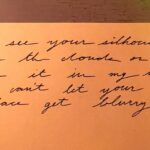 see your silhou
th clouds or
it in my s
can't let your
ace get blurry